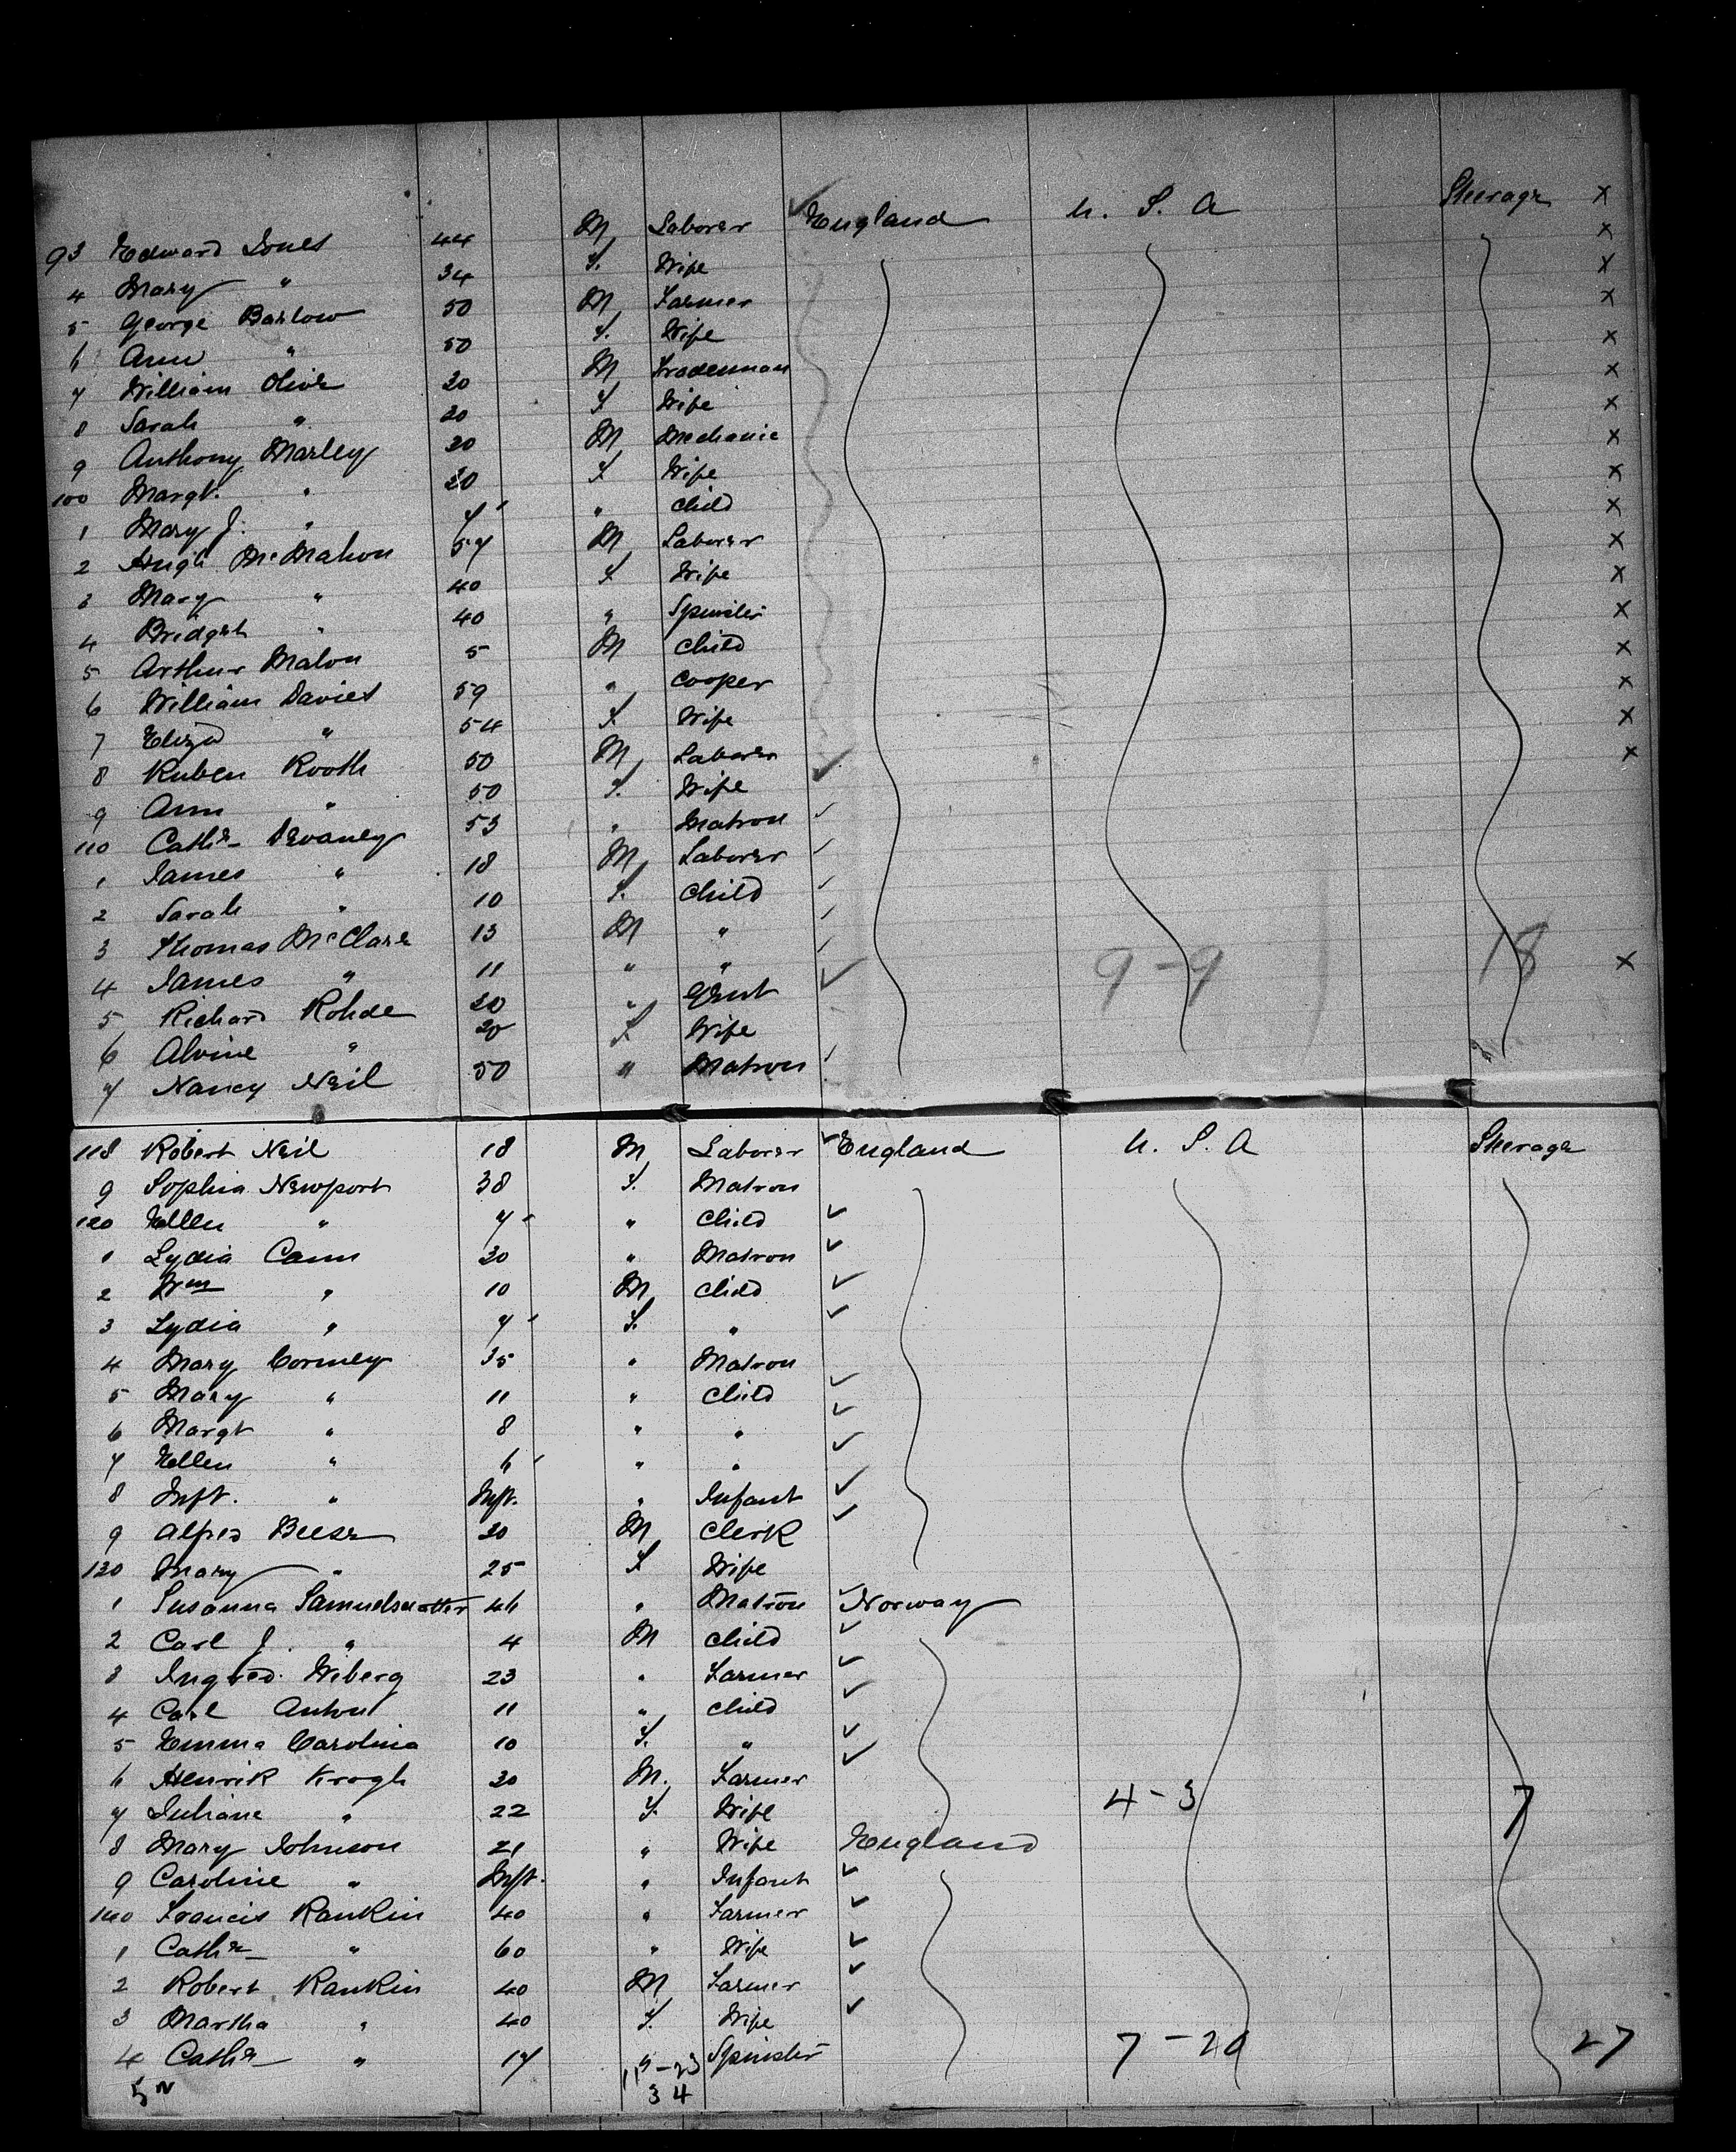 93 Edward Jones 44 M Laborer England U. S. A Steerage X
4 Mary " 34 F. Wife X
5 George Barlow 50 M Farmer X
6 Ann " 50 F. Wife X
7 William Olive 20 M Tradesman X
8 Sarah " 20 F Wife X
9 Anthony Marley 20 M Mechanic X
100 Margt. " 20 F Wife X
1 Mary J. " 7 " Child X
2 Hugh McMahon 57 M Laborer X
3 Mary " 40 F Wife X
4 Bridget " 40 " Spinster X
5 Arthur Malon 5 M Child X
6 William Davies 59 " Cooper X
7 Eliza " 54 F. Wife X
8 Ruben Rooth 50 M Laborer X
9 Ann " 50 F. Wife X
110 Cathe Devaney 53 " Matron
1 James " 18 M Laborer
2 Sarah " 10 F. Child
3 Thomas McClare 13 M "
4 James " 11 " " 9-9 18
5 Richard Rohde 20 " Gent X
6 Alvine " 20 F Wife
7 Nancy Neil 50 " Matron
118 Robert Neil 18 M Laborer England U. S. A Steerage
9 Sophia Newport 38 F. Matron
120 Ellen " 7 " Child
1 Lydia Cann 30 " Matron
2 Wm " 10 M Child
3 Lydia " 7 F. "
4 Mary Cormley 35 " Matron
5 Mary " 11 " Child
6 Margt " 8 " "
7 Ellen " 6 " "
8 Inft. " Inft. " Infant
9 Alfred Beese 20 M Clerk
130 Mary " 25 F Wife
1 Susanna 46 " Matron Norway
2 Carl J. " 4 M Child
3 Ingred. Wiberg 23 " Farmer
4 Carl Anton 11 " Child
5 Emma Carolina 10 F. "
6 Henrik Krogh 30 M. Farmer
7 Juliane " 22 F. Wife 4-3 7
8 Mary Johnson 21 " Wife England
9 Caroline " Inft. " Infant
140 Francis Rankin 40 " Farmer
1 Cathe " 60 " Wife
2 Robert Rankin 40 M Farmer
3 Martha " 40 F. Wife
4 Cathe " 17 Spinster 7-20 27
5 34